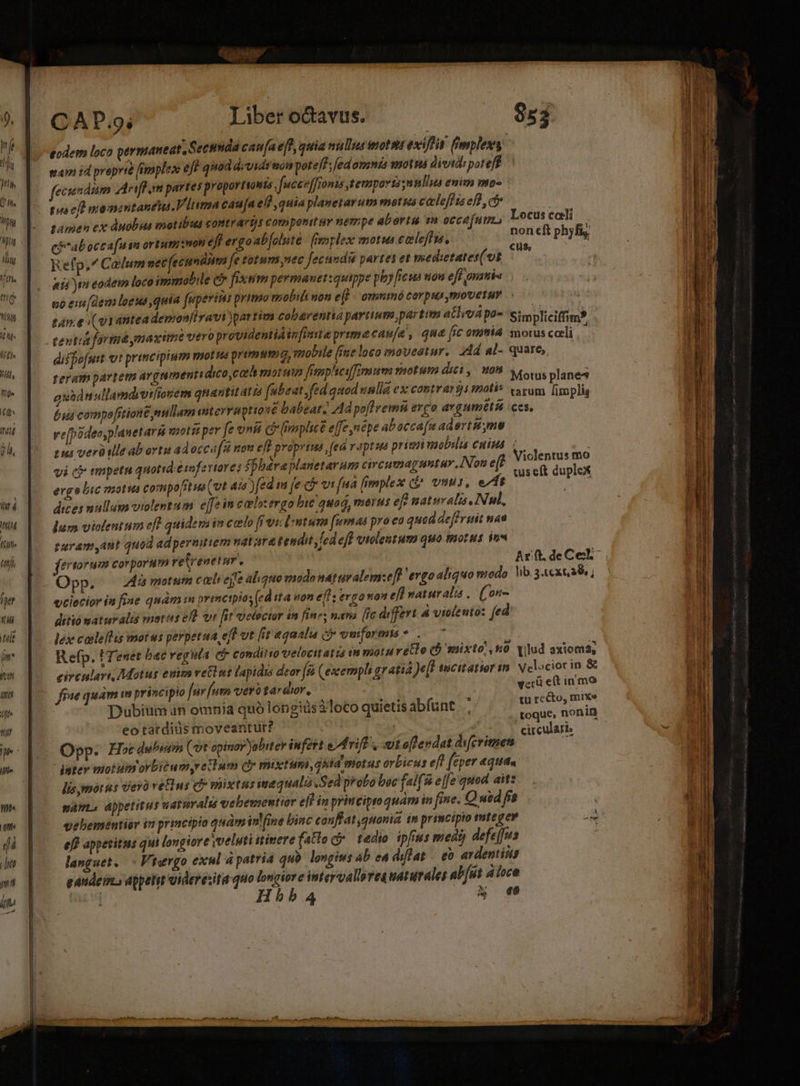 CAP.9. Liber octavus. 953
eodem loco permaneat. Secunda causa est, quia nullus motus existit simplex,
nam id proprie simplex est quod dividi non potest; sed omnis motus dividi potest
secundum Arist. in partes proportionis, successionis, temporis, nullus enim mo-
tus est momentaneus. Vltima causa est, quia planetarum motus coelestis est, &
tamen ex duobus motibus contrarijs componitur nempe ab ortu in occasum,
& ab occasu in ortum: non est ergo absolute simplex motus coelestis.
Resp. Coelum nec secundum se totum, nec secundum partes et medietates (vt
ais) in eodem loco immobile & fixum permanet: quippe physicus non est omnis
no eiusdem locus, quia superius primo mobili non est: omnino corpus, movetur
tamen (vt antea demonstravi) partim cohaerentia partium, partim activa po-
tentia formae, maxime vero providentia infinita primae causae, quae sic omnia
disposuit vt principium motus primumq, mobile sine loco moveatur. Ad al-
teram partem argumenti dico, coeli motum simplicissimum motum dici, non
quod nullam divisionem quantitatis subeat, sed quod nulla ex contrarijs moti-
bus compositione, nullam interruptione habeat. Ad postremu ergo argumetu
respodeo, planetaru motu per se vnu & simplice esse, nepe ab occasu ad ortu, mo
tus vero ille ab ortu ad occasu non est proprius, sed raptus primi mobilis cuius
vi & impetu quotidie inferiores sphaerae planetarum circumaguntur. Non est
ergo hic motus compositus (vt ais) sed in se & vi sua simplex & vnus, At
dices nullum violentum esse in coelo: ergo hic quoq, motus est naturalis. Nul-
lum violentum est quidem in coelo si violentum sumas pro eo quod destruit na-
turam, aut quod ad pernitiem naturae tendit, sed est violentum quo motus in-
feriorum corporum retinetur.
Opp. Ais motum coeli esse aliquo modo naturalem: est ergo aliquo modo
velocior in fine quàm in principio, sed ita non est; ergo non est naturalis. Con-
ditio naturalis motus est vt sit velocior in fine; nam sic differt à violento: sed
lex coelestis motus perpetua est vt sit aequalis & vniformis.
Resp. Tenet haec regula & conditio velocitatis in motu recto & mixto, no
circulari, Motus enim rectus lapidis deorsu (exempli gratia) est incitatior in
fine quam in principio sursum vero tardior.
Dubium an omnia quò longiùs à loco quietis absunt
eo tardiùs moveantur?
Opp. Hoc dubium (vt opinor) obiter infert Arist., vt ostendat discrimen
inter motum orbicum, rectum & mixtum, quia motus orbicus est semper aequa-
lis, motus vero rectus & mixtus inaequalis. Sed probo hoc falsu esse quod ait:
nam appetitus naturalis vehementior est in principio quàm in fine. Quòd sit
vehementior in principio quàm in fine hinc constat, quonia in principio integer
est appetitus qui longiore veluti itinere facto & tedio ipsius medij defessus
languet. Vt ergo exul à patria quò longius ab ea distat eò ardentius
eandem appetit videre: ita quo longiore intervallo res naturales absut à loco
Hhh 4
Locus coeli
non est physi-
cus,
Simplicissim9
motus coeli
quare,
Motus plane-
tarum simpli-
ces,
Violentus mo
tus est duplex
Ar st. de Coel.
lib 3. text, 28,
illud axioma,
Velocior in &
verû est in mo
tu recto, mixto
toque, non in
circulari.